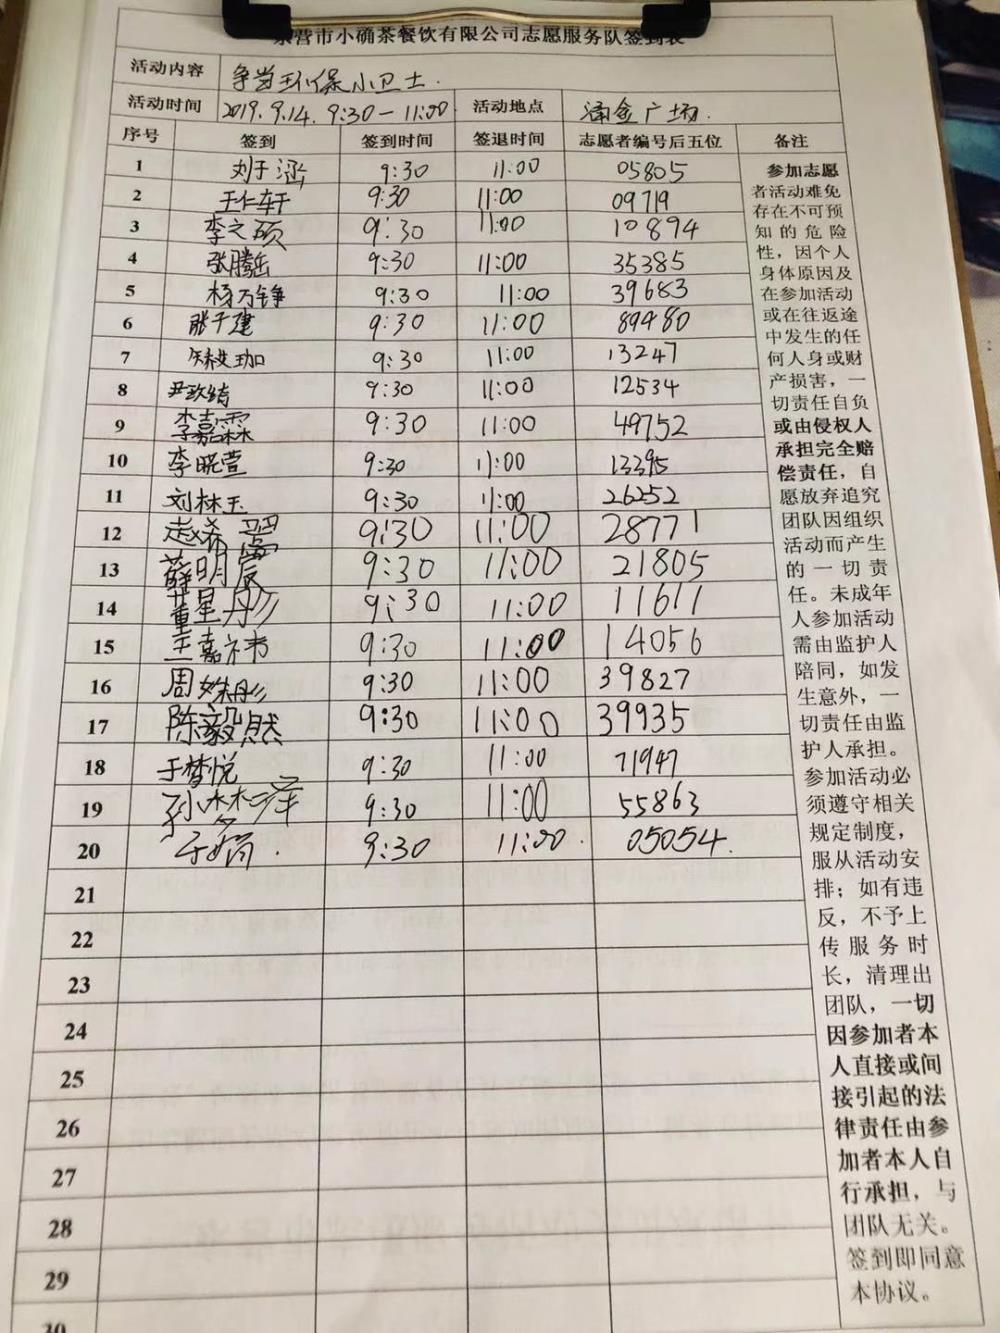 东营市小确茶餐饮有限公司志愿服务队签到表
活动内容 争当环保小卫士.
活动时间 2019.9.14. 9:30-11:00. 活动地点 涌金广场.
序号 签到 签到时间 签退时间 志愿者编号后五位 备注
1 刘于涵 9:30 11:00 05805
2 于仁轩 9:30 11:00 09719
3 李之硕 9:30 11:00 10894
4 张腾岳 9:30 11:00 35385
5 杨万铮 9:30 11:00 39683
6 9:30 11:00 89480
7 9:30 11:00 13247
8 尹玖绮 9:30 11:00 12534
9 李嘉霖 9:30 11:00 49752
10 李晓萱 9:30 11:00 13395
11 刘林玉 9:30 11:00 26252
12 赵希 9:30 11:00 28771
13 薛明宸 9:30 11:00 21805
14 董星彤 9:30 11:00 11611
15 王嘉祎 9:30 11:00 14056
16 周姝彤 9:30 11:00 39827
17 陈毅然 9:30 11:00 39935
18 于梦悦 9:30 11:00 71947
19 孙梦泽 9:30 11:00 55863
20 9:30 11:00. 05054.
21
22
23
24
25
26
27
28
29
30
参加志愿
者活动难免
存在不可预
知的危险
性，因个人
身体原因及
在参加活动
或在往返途
中发生的任
何人身或财
产损害，一
切责任自负
或由侵权人
承担完全赔
偿责任，自
愿放弃追究
团队因组织
活动而产生
的一切责
任。未成年
人参加活动
需由监护人
陪同，如发
生意外，一
切责任由监
护人承担。
参加活动必
须遵守相关
规定制度，
服从活动安
排；如有违
反，不予上
传服务时
长，清理出
团队，一切
因参加者本
人直接或间
接引起的法
律责任由参
加者本人自
行承担，与
团队无关。
签到即同意
本协议。